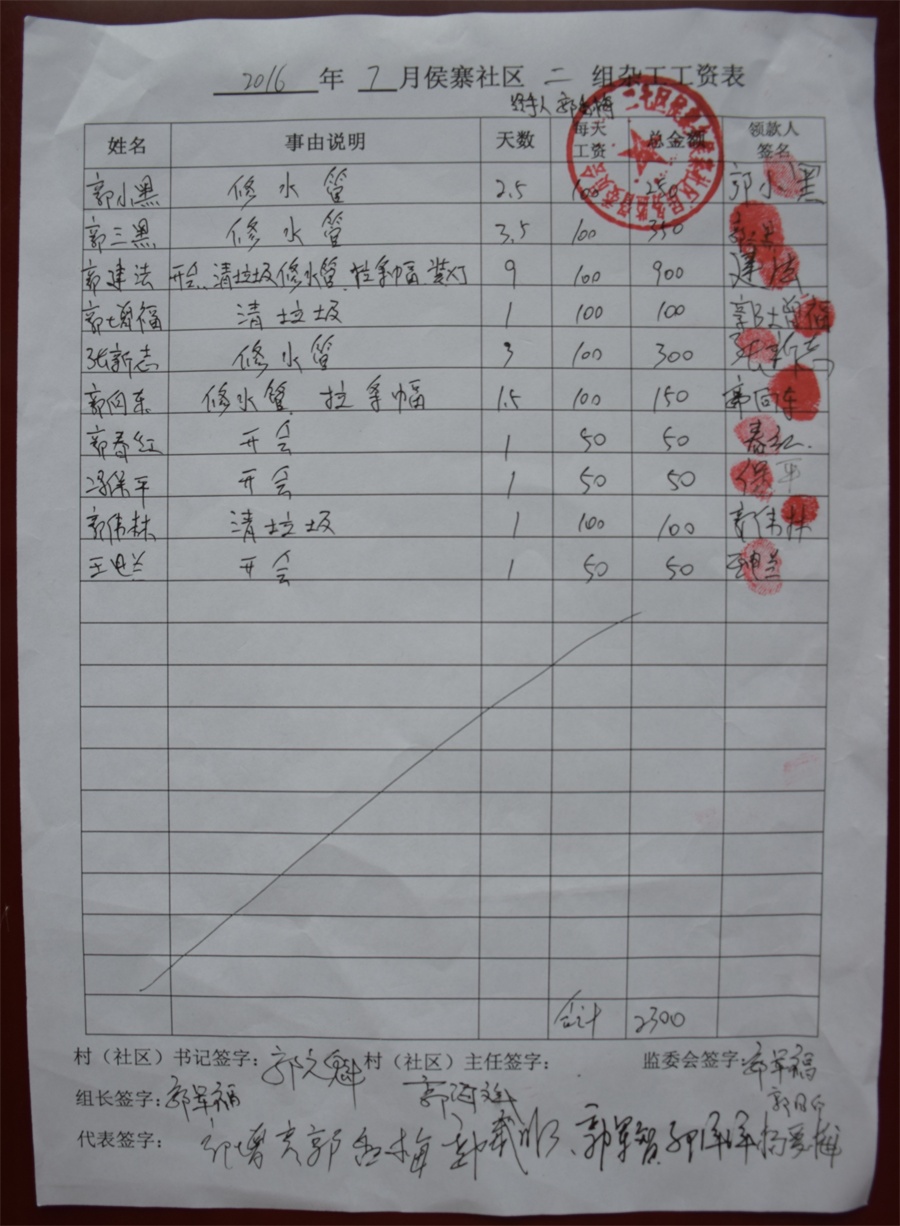 2016 年 7 月侯寨社区 二 组杂工工资表
经手人 郭香梅
姓名 事由说明 天数 每天工资 总金额 领款人签名
郭小黑 修水管 2.5 100 250 郭小黑
郭三黑 修水管 3.5 100 350 郭三黑
郭建法 开会、清垃圾、修水管、拉条幅、装灯 9 100 900 建法
郭增福 清垃圾 1 100 100 郭增福
张新志 修水管 3 100 300 张新志
郭向东 修水管、拉条幅 1.5 100 150 郭向东
郭春红 开会 1 50 50 春红
冯保平 开会 1 50 50 保平
郭伟林 清垃圾 1 100 100 郭伟林
王 兰 开会 1 50 50 王 兰
合计 2300
村（社区）书记签字：郭文魁 村（社区）主任签字： 监委会签字：郭军福
组长签字：郭军福
代表签字： 郭香梅